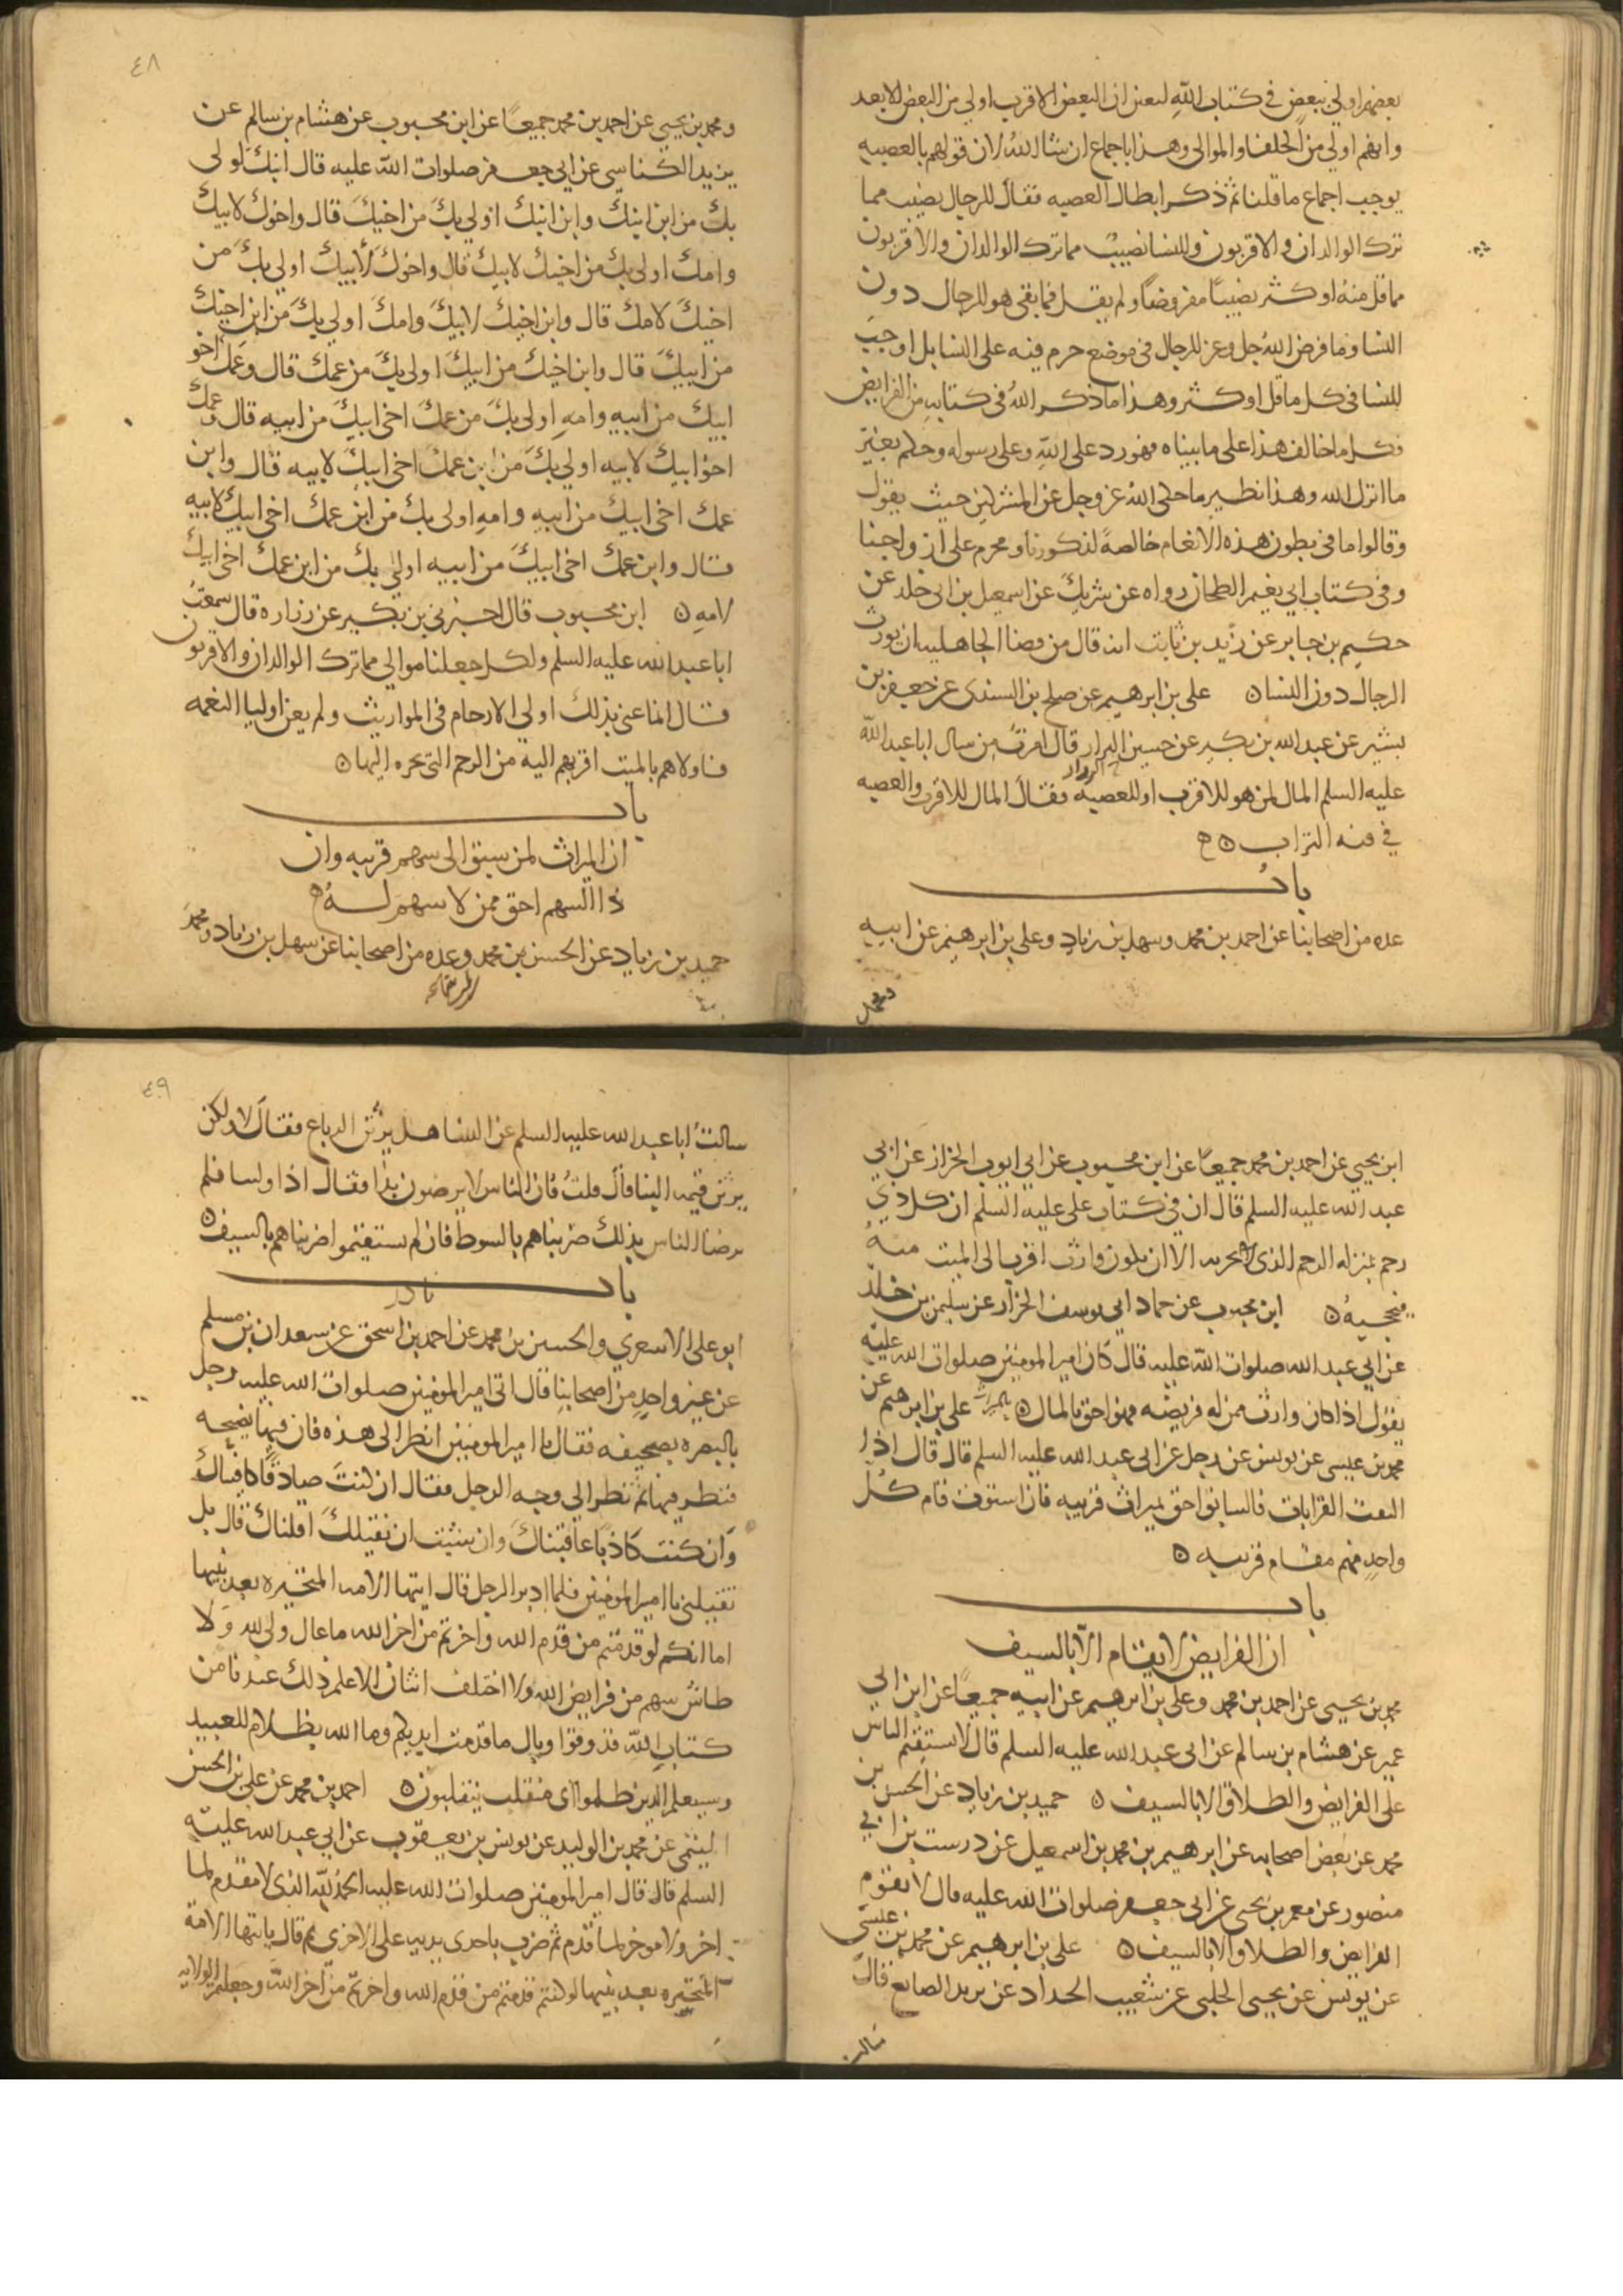 بعضهم اولى ببعض في كتاب الله ليعنى ان البعض الاقرب اولى من البعض الابعد
وانهم اولى من الحلفا والموالى وهذا باجماع ان شا الله لان قولهم بالعصبه
يوجب اجماع ما قلنا ثم ذكر ابطال العصبه فقال للرجال نصيب مما
ترك الوالدان والاقربون وللنسا نصيب مما ترك الوالدان والاقربون
مما قل منه او كثر نصيبًا مفروضًا ولم يقل فما بقى هو للرجال دون
النسا وما فرض الله جل وعز للرجال فى موضع حرم فيه على النسا بل اوجب
للنسا فى كل ما قل او كثر وهذا ما ذكر الله فى كتابه من الفرايض
فكل ما خالف هذا على ما بيناه فهو رد على الله وعلى رسوله وحكم بغير
ما انزل الله وهذا نظير ما حكى الله عز وجل عن المشركين حيث يقول
وقالوا ما فى بطون هذه الانعام خالصة لذكورنا ومحرم على ازواجنا
وفى كتاب ابي نعيم الطحان رواه عن شريك عن اسمعيل بن ابى خلد عن
حكيم بن جابر عن زيد بن ثابت انه قال من قضا الجاهليه ان يورث
الرجال دون النسا ه علي بن ابرهيم عن صلح بن السندى عن جعفر بن
بشير عن عبد الله بن بكير عن حسين البزار قال امرت من سال ابا عبد الله
عليه السلم المال لمن هو للاقرب او للعصبه فقال المال للاقرب والعصبه
في فيه التراب ه
باب
عده من اصحابنا عن احمد بن محمد وسهل بن زياد وعلي بن ابرهيم عن ابيه
ومحمد
٤٨
ومحمد بن يحيي عن احمد بن محمد جميعًا عن ابن محبوب عن هشام بن سالم عن
يزيد الكناسي عن ابي جعفر صلوات الله عليه قال ابنك اولى
بك من ابن ابنك وابن ابنك اولى بك من اخيك قال واخوك لابيك
وامك اولى بك من اخيك لابيك قال واخوك لأبيك اولى بك من
اخيك لامك قال وابن اخيك لابيك وامك اولى بك من ابن اخيك
من ابيك قال وابن اخيك من ابيك اولى بك من عمك قال وعمك اخو
ابيك من ابيه وامه اولى بك من عمك اخى ابيك من ابيه قال وعمك
اخو ابيك لابيه اولى بك من ابن عمك اخى ابيك لابيه قال وابن
عمك اخى ابيك من ابيه وامه اولى بك من ابن عمك اخى ابيك لابيه
قال وابن عمك اخى ابيك من ابيه اولى بك من ابن عمك اخى ابيك
لامه ه ابن محبوب قال اخبرني بن بكير عن زراره قال سمعت
ابا عبد الله عليه السلم ولكل جعلنا موالي مما ترك الوالدان والاقربون
قال انما عنى بذلك اولى الارحام فى المواريث ولم يعن اوليا النعمه
فاولاهم بالميت اقربهم اليه من الرحم التي تجره اليها ه
باب
ان الميراث لمن سبق الى سهم قريبه وان
ذا السهم احق ممن لا سهم له
حميد بن زياد عن الحسن بن محمد وعده من اصحابنا عن سهل بن زياد ومحمد
ابن يحيي عن احمد بن محمد جميعًا عن ابن محبوب عن ابي ايوب الخزاز عن ابي
عبد الله عليه السلم قال ان في كتاب على عليه السلم ان كل ذي
رحم بمنزله الرحم الذى يجر به الا ان يكون وارث اقرب الى الميت منه
فيحجبه ه ابن محبوب عن حماد ابي يوسف الخزاز عن سليمن بن خلد
عن ابي عبد الله صلوات الله عليه قال كان امير المومنين صلوات الله عليه
يقول اذا كان وارث ممن له فريضه فهو احق بالمال ه علي بن ابرهيم عن
محمد بن عيسى عن يونس عن رجل عن ابى عبد الله عليه السلم قال قال اذا
التفت القرابات فالسابق احق بميراث قريبه فان استوت قام كل
واحد منهم مقام قريبه ه
باب
ان الفرايض لا يقام الا بالسيف
محمد بن يحيى عن احمد بن محمد وعلي بن ابرهيم عن ابيه جميعًا عن ابن ابي
عمير عن هشام بن سالم عن ابى عبد الله عليه السلم قال لا يستقيم الناس
على الفرايض والطلاق الا بالسيف ه حميد بن زياد عن الحسن بن
محمد عن بعض اصحابه عن ابرهيم بن محمد بن اسمعيل عن درست بن ابي
منصور عن معمر بن يحيى عن ابى جعفر صلوات الله عليه قال لا تقوم
الفرايض والطلاق الا بالسيف ه علي بن ابرهيم عن محمد بن عيسى
عن يونس عن يحيى الحلبي عن شعيب الحداد عن يزيد الصايغ قال
سالت
٤٩
سالت ابا عبد الله عليه السلم عن النسا هل يرثن الرباع فقال لا ولكن
يرثن قيمه البنا قال قلت فان الناس لا يرضون بذا فقال اذا ولينا فلم
يرضا الناس بذلك ضربناهم بالسوط فان لم يستقيموا ضربناهم بالسيف ه
باب
نادر
ابو على الاسعري والحسين بن محمد عن احمد بن اسحق عن سعدان بن مسلم
عن غير واحد من اصحابنا قال اتى امير المومنين صلوات الله عليه رجل
بالبصره بصحيفه فقال يا امير المومنين انظر الى هذه فان فيها نصيحه
فنظر فيها ثم نظر الى وجه الرجل فقال ان كنت صادقًا كافيناك
وان كنت كاذبًا عاقبناك وان شيت ان نقيلك اقلناك قال بل
تقيلني يا امير المومنين فلما ادبر الرجل قال ايتها الامه المتحيره بعد نبيها
اما انكم لو قدمتم من قدم الله واخرتم من اخر الله ما عال ولى الله ولا
طاش سهم من فرايض الله ولا اختلف اثنان الا علم ذلك عندنا من
كتاب الله فذوقوا وبال ما قدمت ايديكم وما الله بظلام للعبيد
وسيعلم الذين ظلموا اى منقلب ينقلبون ه احمد بن محمد عن علي بن الحسن
التيمى عن محمد بن الوليد عن يونس بن يعقوب عن ابي عبد الله عليه
السلم قال قال امير المومنين صلوات الله عليه الحمد لله الذى لا مقدم لما
اخر ولا موخر لما قدم ثم ضرب باحدى يديه على الاخرى ثم قال يا ايتها الامة
المتحيره بعد نبيها لو كنتم قدمتم من قدم الله واخرتم من اخر الله وجعلتم الولايه